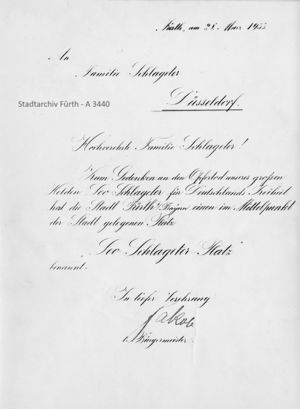 Fürth, am 28. März 1933
An
Familie Schlageter
Düsseldorf.
Stadtarchiv Fürth - A 3440
Hochverehrte Familie Schlageter!
Zum Gedenken an den Opfertod unseres großen
Helden Leo Schlageter für Deutschlands Freiheit
hat die Stadt Fürth i/Bayern einen im Mittelpunkt
der Stadt gelegenen Platz
„Leo Schlageter Platz"
benannt.
In tiefer Verehrung
Jakob
Bürgermeister